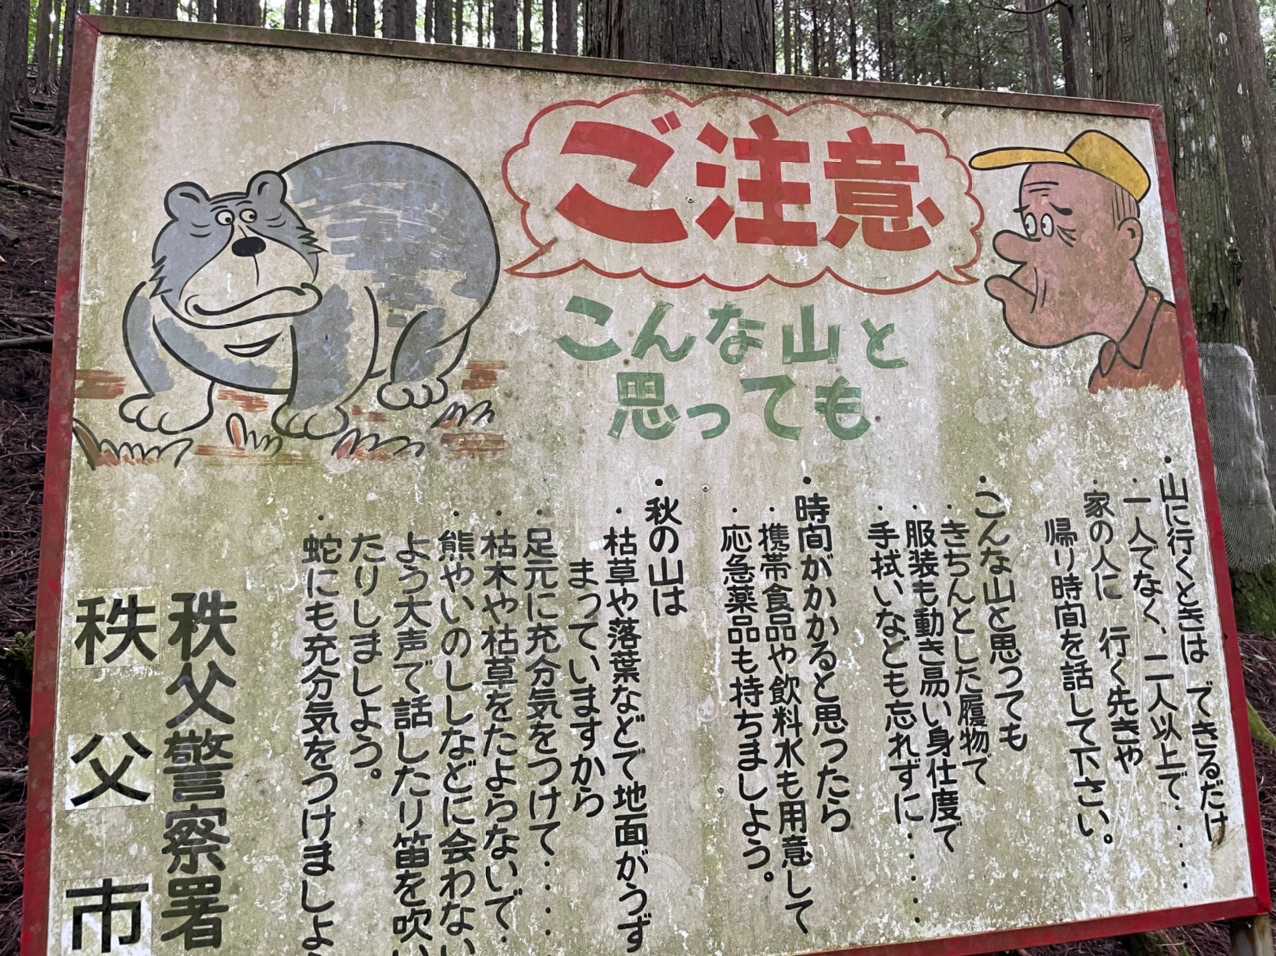 ご注意
こんな山と
思っても
・山に行くときはできるだけ
・一人でなく、二人以上で…
家の人に行く先きや
・帰り時間を話して下さい。
・こんな山と思っても
・きちんとした履物で
・服装も動き易い身仕度で
手拭いなども忘れずに…
・時間がかかると思ったら
・携帯食品や飲料水も用意して
・応急薬品も持ちましょう。
・秋の山は
・枯草や落葉などで地面がうず
まっていますから
足元に充分気をつけて…
・枯木や枯草をたよらないで…
・熊やいのししなどに会わない
よう大声で話したり笛を吹い
たりしましょう。
・蛇にも充分気をつけましょ
秩父警察署
秩父市